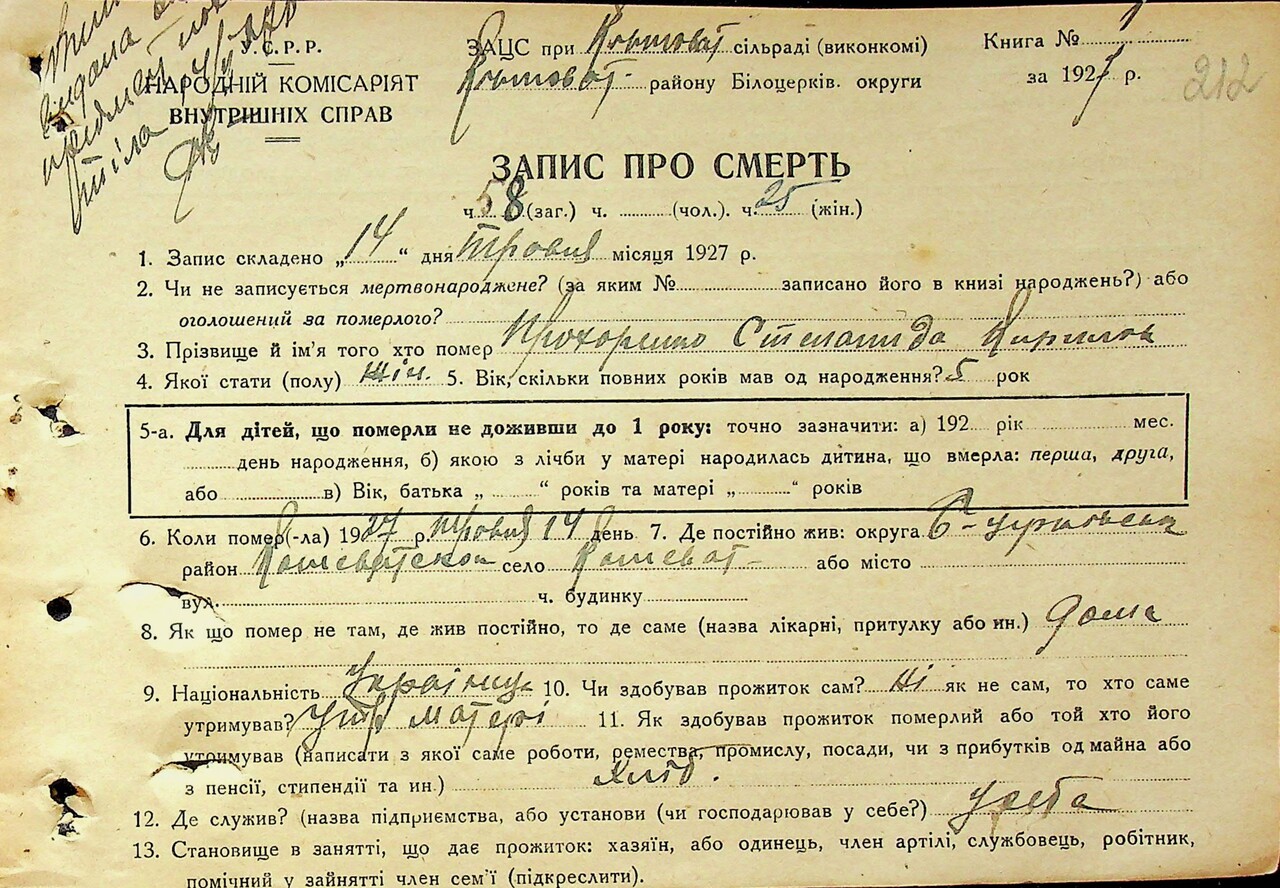 видана
тіла
У.С.Р.Р.
НАРОДНІЙ КОМІСАРІЯТ
ВНУТРІШНІХ СПРАВ
ЗАЦС при Кошоват сільраді (виконкомі)
Кошоват- району Білоцерків. округи
Книга № 1
за 1927 р.
212
ЗАПИС ПРО СМЕРТЬ
ч. 58 (заг.) ч. (чол.). ч. 25 (жін.)
1. Запис складено „ 14 “ дня Травня місяця 1927 р.
2. Чи не записується мертвонароджене? (за яким № записано його в книзі народжень?) або
оголошений за померлого?
3. Прізвище й ім'я того хто помер Прохоренко Степанида Кирилов
4. Якої стати (полу) жін. 5. Вік, скільки повних років мав од народження? 5 рок
5-а. Для дітей, що померли не доживши до 1 року: точно зазначити: а) 192 рік мес.
день народження, б) якою з лічби у матері народилась дитина, що вмерла: перша, друга,
або в) Вік, батька „ “ років та матері „ “ років
6. Коли помер(-ла) 1927 р. травня 14 день 7. Де постійно жив: округа Б-церковська
район село Кошеват- або місто
вул. ч. будинку
8. Як що помер не там, де жив постійно, то де саме (назва лікарні, притулку або ин.) дома
9. Національність 10. Чи здобував прожиток сам? ні як не сам, то хто саме
утримував? утр матері 11. Як здобував прожиток померлий або той хто його
утримував (написати з якої саме роботи, ремества, промислу, посади, чи з прибутків од майна або
з пенсії, стипендії та ин.) хліб.
12. Де служив? (назва підприємства, або установи (чи господарював у себе?) у себа
13. Становище в занятті, що дає прожиток: хазяїн, або одинець, член артілі, службовець, робітник,
помічний у зайнятті член сем'ї (підкреслити).